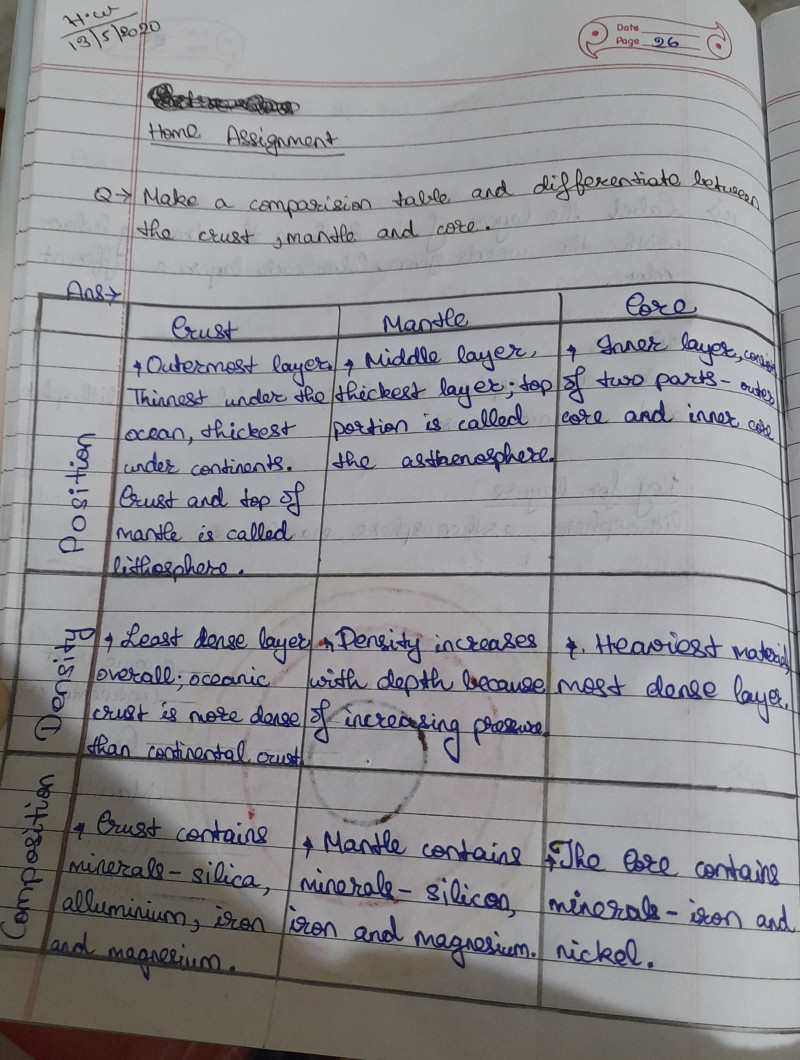 H.W
13/5/2020
Date
Page 26
Home Assignment
Q→ Make a comparision table and differentiate between
the crust, mantle and core.
Ans→
Crust
Mantle
Core
Position
→ Outermost layer.
Thinnest under the
ocean, thickest
under continents.
Crust and top of
mantle is called
lithosphere.
→ Middle layer,
thickest layer; top
portion is called
the asthenosphere.
→ Inner layer,
of two parts - outer
core and inner core
Density
→ Least dense layer
overall; oceanic
crust is more dense
than continental crust
→ Density increases
with depth because
of increasing pressure.
→ Heaviest material,
most dense layer.
Composition
→ Crust contains
minerals - silica,
alluminium, iron
and magnesium.
→ Mantle contains
minerals - silicon,
iron and magnesium.
→ The Core contains
minerals - iron and
nickel.